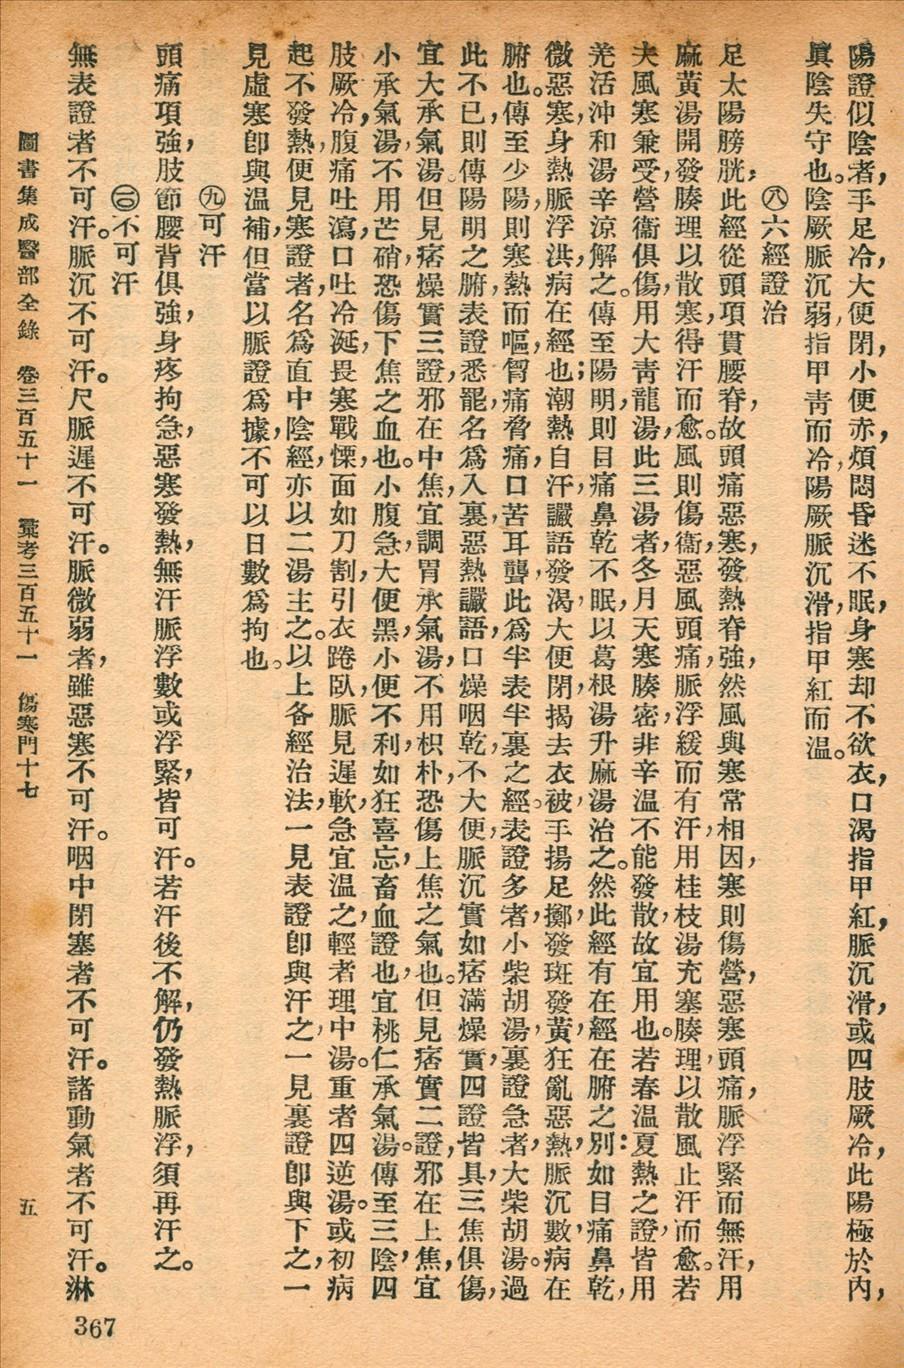 陽證似陰者，手足冷，大便閉，小便赤，煩悶昏迷不眠，身寒却不欲衣，口渴指甲紅，脈沉滑，或四肢厥冷，此陽極於內，
眞陰失守也。陰厥脈沉弱，指甲靑而冷，陽厥脈沉滑，指甲紅而温。
㊇六經證治
足太陽膀胱，此經從頭項貫腰脊，故頭痛惡寒，發熱脊強，然風與寒常相因，寒則傷營，惡寒頭痛，脈浮緊而無汗，用
麻黃湯開發腠理以散寒，得汗而愈。風則傷衞，惡風頭痛，脈浮緩而有汗，用桂枝湯充塞腠理，以散風止汗而愈。若
夫風寒兼受，營衞俱傷，用大靑龍湯，此三湯者，冬月天寒腠密，非辛温不能發散，故宜用也。若春温夏熱之證，皆用
羌活沖和湯辛涼解之。傳至陽明，則目痛鼻乾不眠，以葛根湯升麻湯治之。然此經有在經在腑之別：如目痛鼻乾，
微惡寒，身熱脈浮洪，病在經也；潮熱自汗，讝語發渴，大便閉，揭去衣被，手揚足擲，發斑發黃，狂亂惡熱，脈沉數，病在
腑也。傳至少陽，則寒熱而嘔，胷痛脅痛，口苦耳聾，此爲半表半裏之經。表證多者，小柴胡湯，裏證急者，大柴胡湯。過
此不已，則傳陽明之腑，表證悉罷，名爲入裏，惡熱讝語，口燥咽乾，不大便，脈沉實，如痞滿燥實，四證皆具，三焦俱傷，
宜大承氣湯。但見痞燥實三證，邪在中焦，宜調胃承氣湯，不用枳朴，恐傷上焦之氣也。但見痞實二證，邪在上焦，宜
小承氣湯，不用芒硝，恐傷下焦之血也。小腹急，大便黑，小便不利，如狂喜忘，畜血證也，宜桃仁承氣湯。傳至三陰，四
肢厥冷，腹痛吐瀉，口吐冷涎，畏寒戰慄，面如刀割，引衣踡臥，脈見遲軟，急宜温之，輕者理中湯。重者四逆湯。或初病
起不發熱，便見寒證者，名爲直中陰經，亦以二湯主之。以上各經治法，一見表證卽與汗之，一見裏證卽與下之，一
見虛寒卽與温補，但當以脈證爲據，不可以日數爲拘也。
㊈可汗
頭痛項強，肢節腰背俱強，身疼拘急，惡寒發熱，無汗脈浮數或浮緊，皆可汗。若汗後不解，仍發熱脈浮，須再汗之。
㊁不可汗
無表證者不可汗。脈沉不可汗。尺脈遲不可汗。脈微弱者，雖惡寒不可汗。咽中閉塞者不可汗。諸動氣者不可汗。淋
圖書集成醫部全錄 卷三百五十一 彙考三百五十一 傷寒門十七 五
367